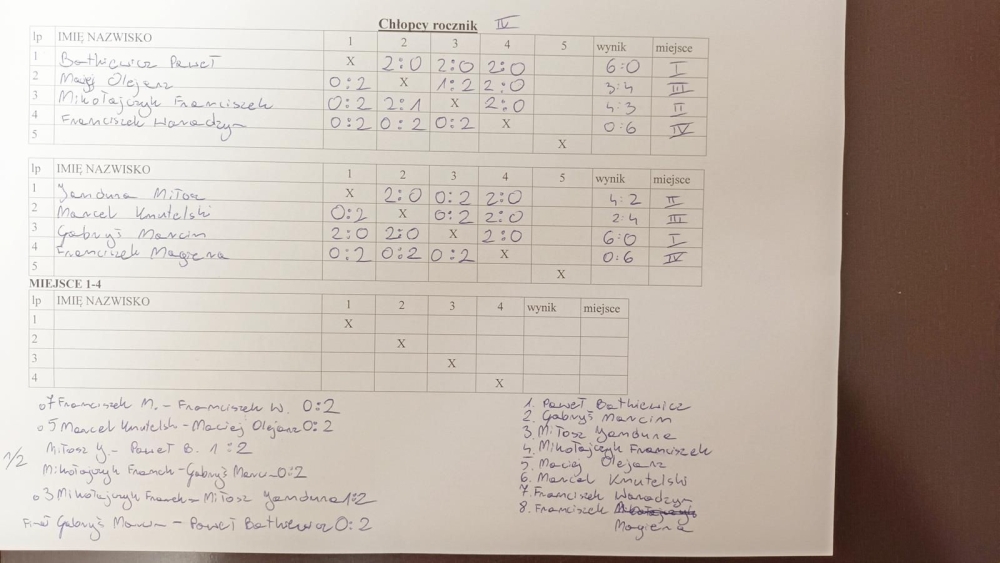 Chłopcy rocznik IV
lp IMIĘ NAZWISKO 1 2 3 4 5 wynik miejsce
1 Batkiewicz Paweł X 2:0 2:0 2:0 6:0 I
2 Maciej Olejarz 0:2 X 1:2 2:0 3:4 III
3 Mikołajczyk Franciszek 0:2 2:1 X 2:0 4:3 II
4 Franciszek Waradzyn 0:2 0:2 0:2 X 0:6 IV
5 X
lp IMIĘ NAZWISKO 1 2 3 4 5 wynik miejsce
1 Yanduna Miłosz X 2:0 0:2 2:0 4:2 II
2 Marcel Knutelski 0:2 X 0:2 2:0 2:4 III
3 Gabryś Marcin 2:0 2:0 X 2:0 6:0 I
4 Franciszek Magiera 0:2 0:2 0:2 X 0:6 IV
5 X
MIEJSCE 1-4
lp IMIĘ NAZWISKO 1 2 3 4 wynik miejsce
1 X
2 X
3 X
4 X
o7 Franciszek M. - Franciszek W. 0:2
o5 Marcel Knutelski - Maciej Olejarz 0:2
1/2 Miłosz Y. - Paweł B. 1:2
Mikołajczyk Franek - Gabryś Marcin 0:2
o3 Mikołajczyk Franek - Miłosz Yanduna 1:2
Finał Gabryś Marcin - Paweł Batkiewicz 0:2
1. Paweł Batkiewicz
2. Gabryś Marcin
3. Miłosz Yanduna
4. Mikołajczyk Franciszek
5. Maciej Olejarz
6. Marcel Knutelski
7. Franciszek Waradzyn
8. Franciszek
Magiera